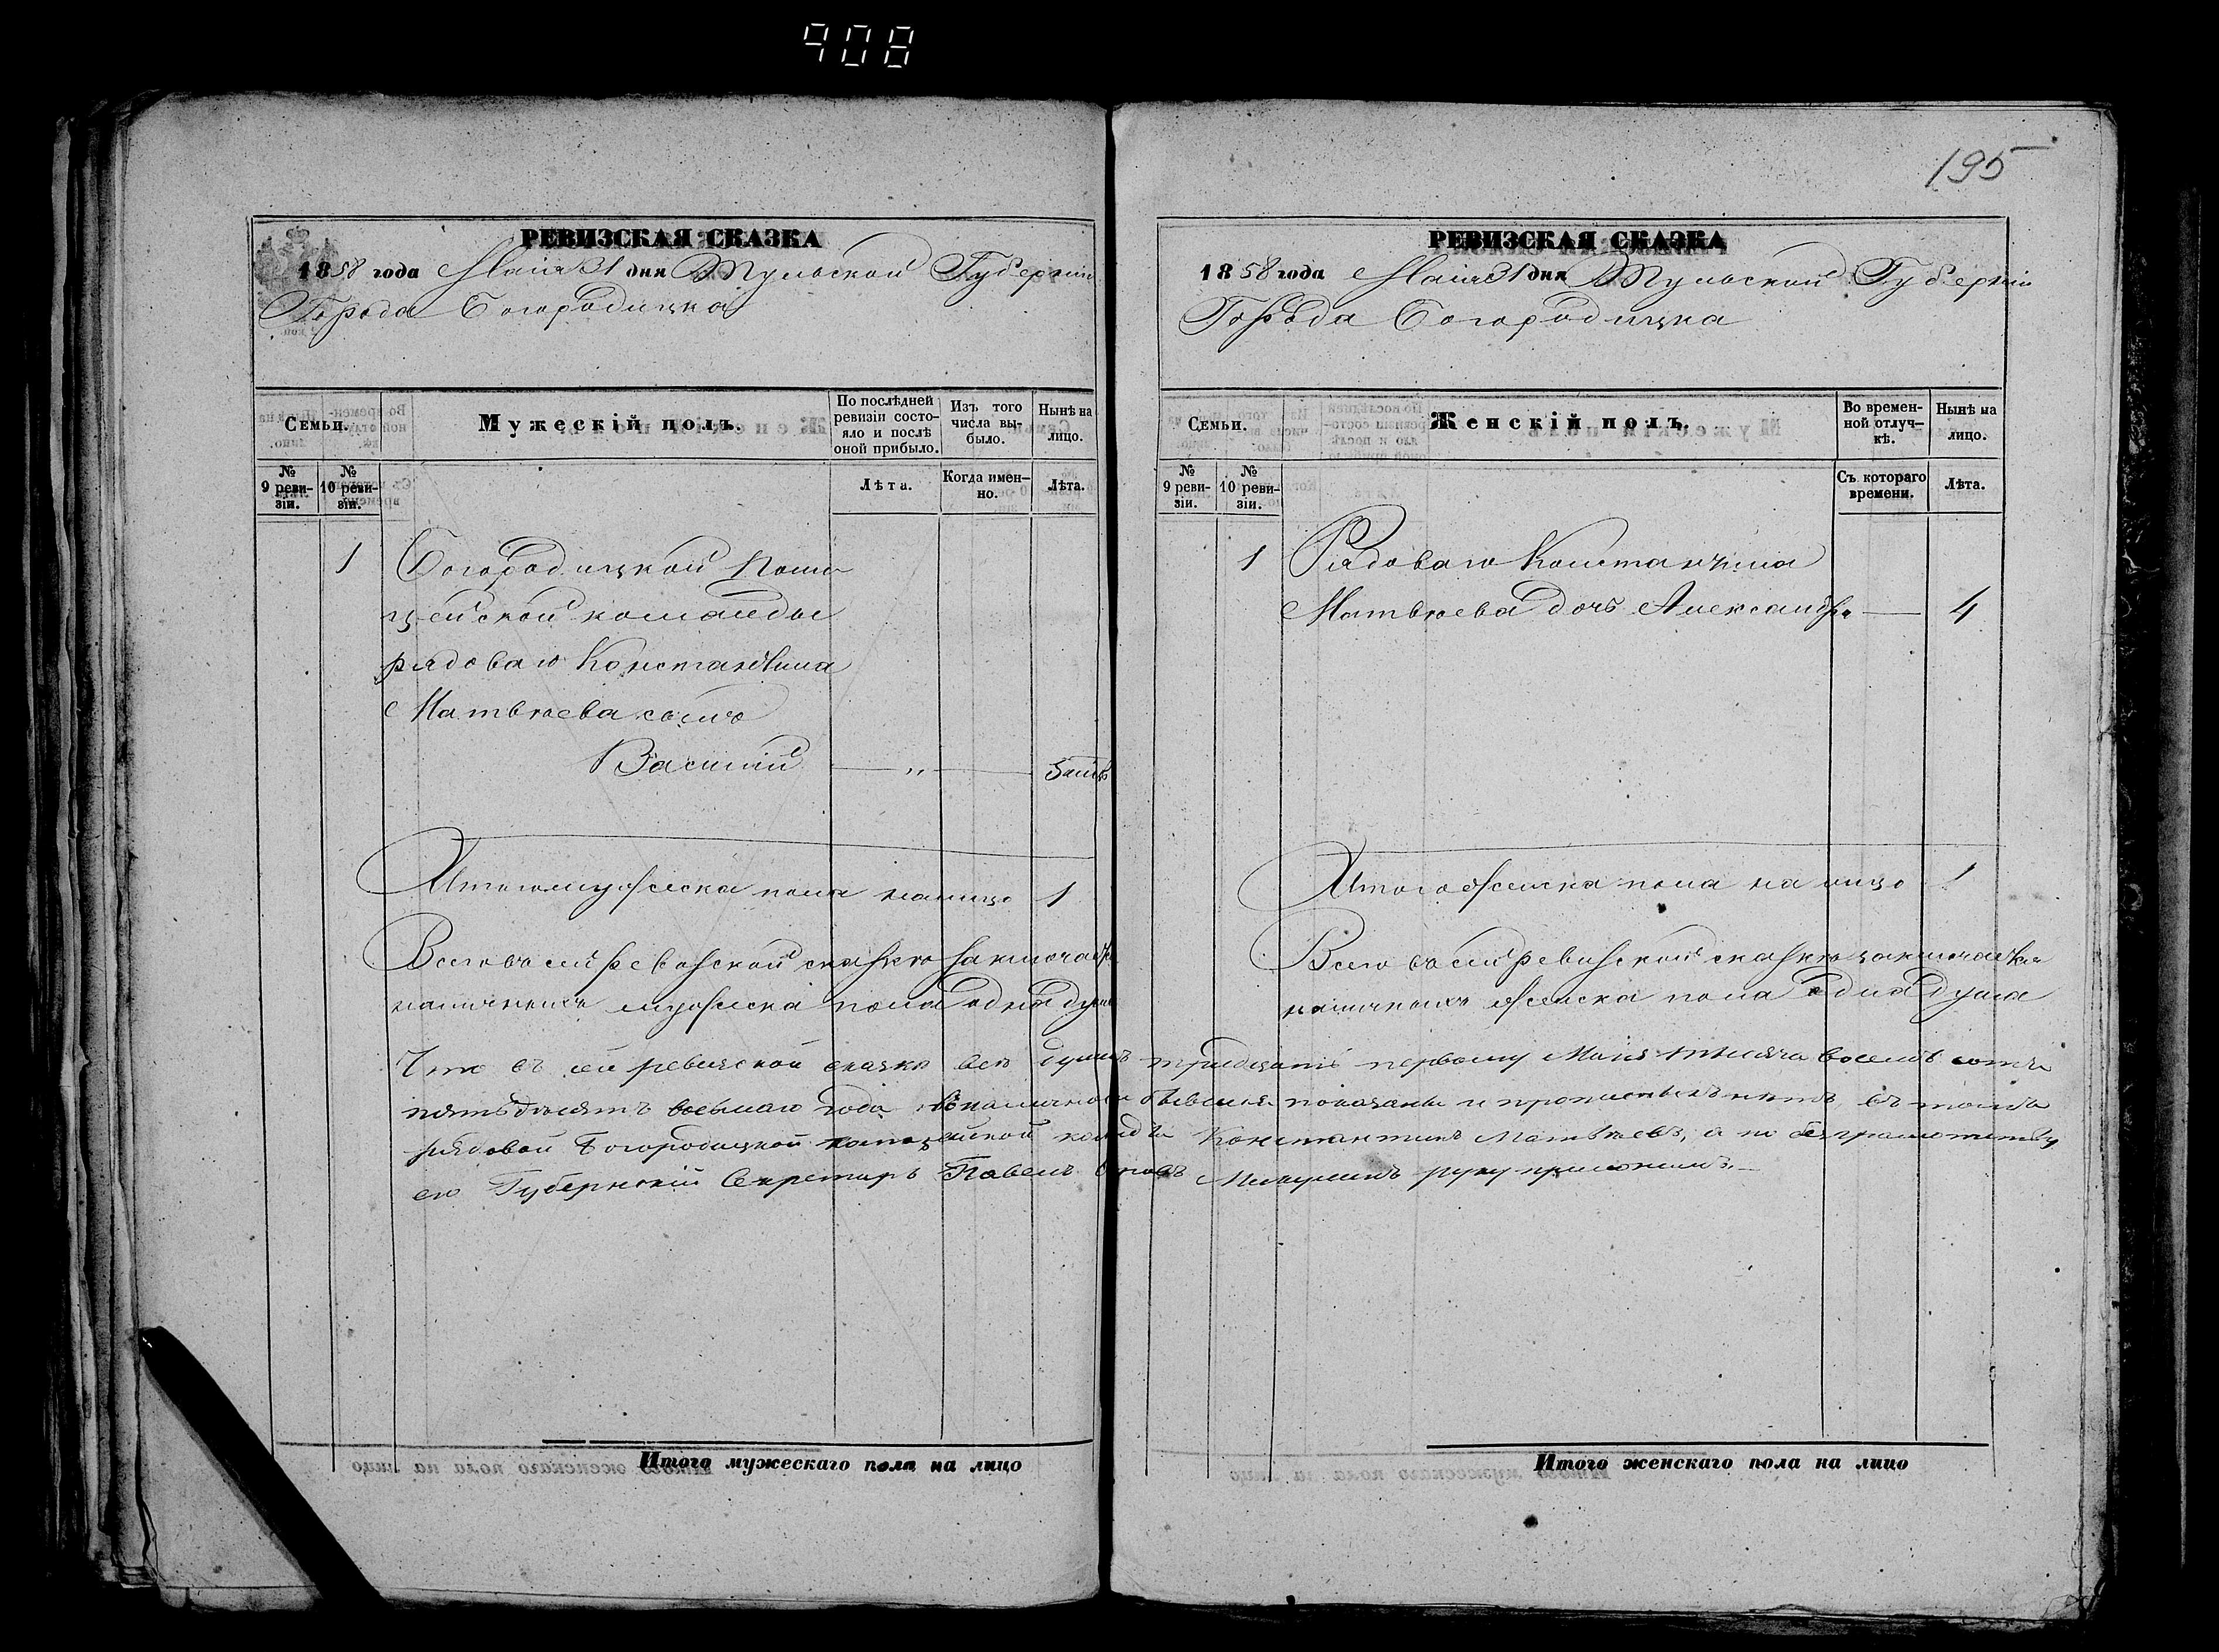 408
РЕВИЗСКАЯ СКАЗКА
1858 года Маія 31 дня Тульской Губерніи
Города Богородицка
Семьи.
Мужескій полъ.
По послѣдней ревизіи состояло и послѣ оной прибыло.
Изъ того числа выбыло.
Нынѣ на лицо.
№ 9 ревизіи.
№ 10 ревизіи.
Лѣта.
Когда именно.
Лѣта.
1 Богородицкой Поли
цейской команды
рядоваго Константина
Матвѣева сынъ
Василій — „ —
Итого мужеска пола налицо 1
Всего въ сей ревизской сказкѣ заключается
наличныхъ мужеска пола одна душа
195
РЕВИЗСКАЯ СКАЗКА
1858 года Маія 31 дня Тульской Губерніи
Города Богородицка
Семьи.
Женскій полъ.
Во временной отлучкѣ.
Нынѣ на лицо.
№ 9 ревизіи.
№ 10 ревизіи.
Съ котораго времени.
Лѣта.
1 Рядоваго Константина
Матвѣева дочь Александра — 4
Итого женска пола на лицо 1
Всего въ сей ревизской сказкѣ заключается
наличныхъ женска пола одна душа
Что въ сей ревизской сказкѣ всѣ души къ тридцать первому Маія тысяча восемь сотъ
пятьдесятъ восьмаго года въ наличности показаны и прописныхъ нѣтъ, въ томъ
рядовой Богородицкой полицейской команды Константинъ Матвѣевъ, а по безграмотству
его Губернскій Секретарь Павелъ руку приложилъ.
Итого мужескаго пола на лицо
Итого женскаго пола на лицо